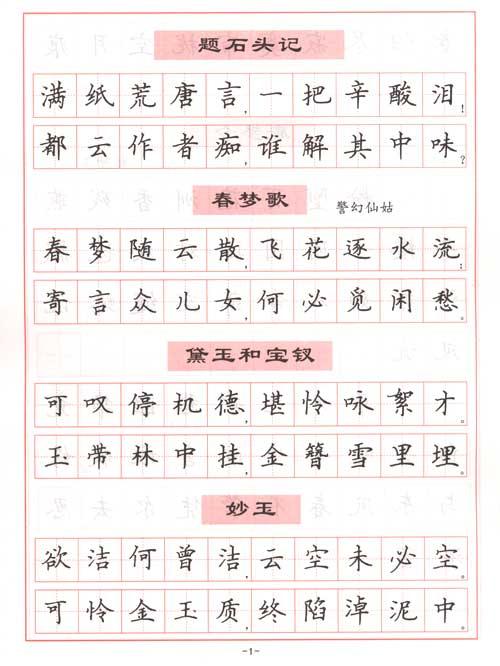 题石头记
满纸荒唐言，一把辛酸泪！
都云作者痴，谁解其中味？
春梦歌 警幻仙姑
春梦随云散，飞花逐水流；
寄言众儿女，何必觅闲愁。
黛玉和宝钗
可叹停机德，堪怜咏絮才。
玉带林中挂，金簪雪里埋。
妙玉
欲洁何曾洁，云空未必空。
可怜金玉质，终陷淖泥中。
-1-